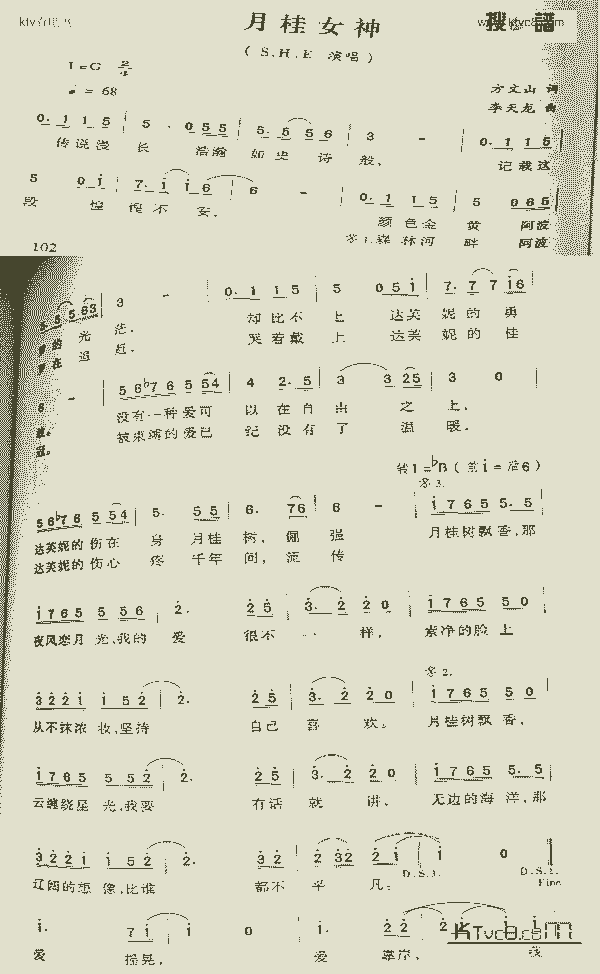 月桂女神
搜谱
（S.H.E 演唱）
1=G
= 68
方文山 词
李天龙 曲
0. 1 1 5 | 5. 0 5 5 | 5. 5 5 6 | 3 - | 0. 1 1 5
传说漫 长 浩瀚 如史诗 般， 记载这
5 0 1 | 7. 1 1 6 | 6 - | 0. 1 1 5 | 5 0 6 5
段 惶 惶不 安。 颜色金 黄 阿波
森林河 畔 阿波
102
3 - | 0. 1 1 5 | 5 0 5 1 | 7. 7 7 1 6
光 茫。 却比不 上 达芙 妮的 勇
追 赶。 哭着戴 上 达芙 妮的 桂
6 - | 5 6 b7 6 5 5 4 | 4 2. 5 | 3 3 2 5 | 3 0
没有一种爱可 以在自由 之上。
被束缚的爱已 经没有了 温暖。
转1=bB（前i=后6）
5 6 b7 6 5 5 4 | 5. 5 5 | 6. 7 6 | 6 - | 1 7 6 5 5. 5
达芙妮的伤在 身 月桂 树，倔 强 月桂树飘香，那
达芙妮的伤心 疼 千年 间，流 传
1 7 6 5 5 5 6 | 2. 2 5 | 3. 2 2 0 | 1 7 6 5 5 0
夜风恋月光，我的 爱 很不 一 样， 素净的脸上
3 2 2 1 1 5 2 | 2. 2 5 | 3. 2 2 0 | 1 7 6 5 5 0
从不抹浓妆，坚持 自己 喜 欢。 月桂树飘香，
1 7 6 5 5 5 2 | 2. 2 5 | 3. 2 2 0 | 1 7 6 5 5. 5
云缠绕星光，我要 有话 就 讲， 无边的海洋，那
3 2 2 1 1 5 2 | 2. 3 2 | 2 3 2 2 1 | 1 0
辽阔的想像，比谁 都不 平 凡。
D.S.1. D.S.2.
Fine
1. 7 1 | 1 0 | 1. 2 2
爱 摇晃， 爱 靠岸， 我
KTvc8.com